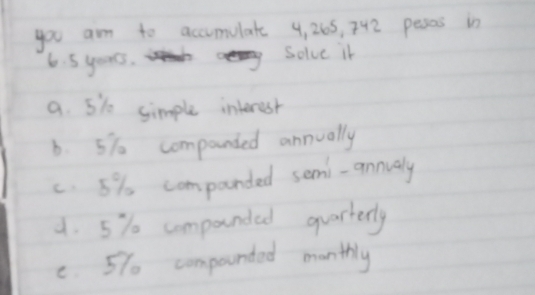 you aim to accumulate 4,265,742 pesos in
6.5 years. Solve it
a. 5% simple interest
b. 5% compounded annually
c. 5% compounded semi-annualy
d. 5% compounded quarterly
e. 5% compounded monthly